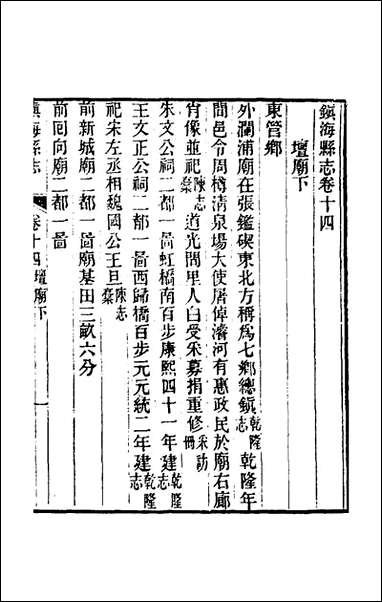 鎮海縣志卷十四
壇廟下
東管鄉
外瀾浦廟在張鑑碶東北方稱爲七鄉總鎮乾隆志乾隆年
間邑令周樽淸泉塲大使屠倬濬河有惠政民於廟右廊
肖像並祀陳志稾道光間里人白受采募捐重修采訪冊
朱文公祠二都一啚虹橋南百步康熙四十一年建乾隆志
王文正公祠二都一啚西歸橋百步元元統二年建乾隆志
祀宋左丞相魏國公王旦陳志稾
前新城廟二都一啚廟基田三畝六分
前囘向廟二都一啚
鎮海縣志
卷十四壇廟下
一